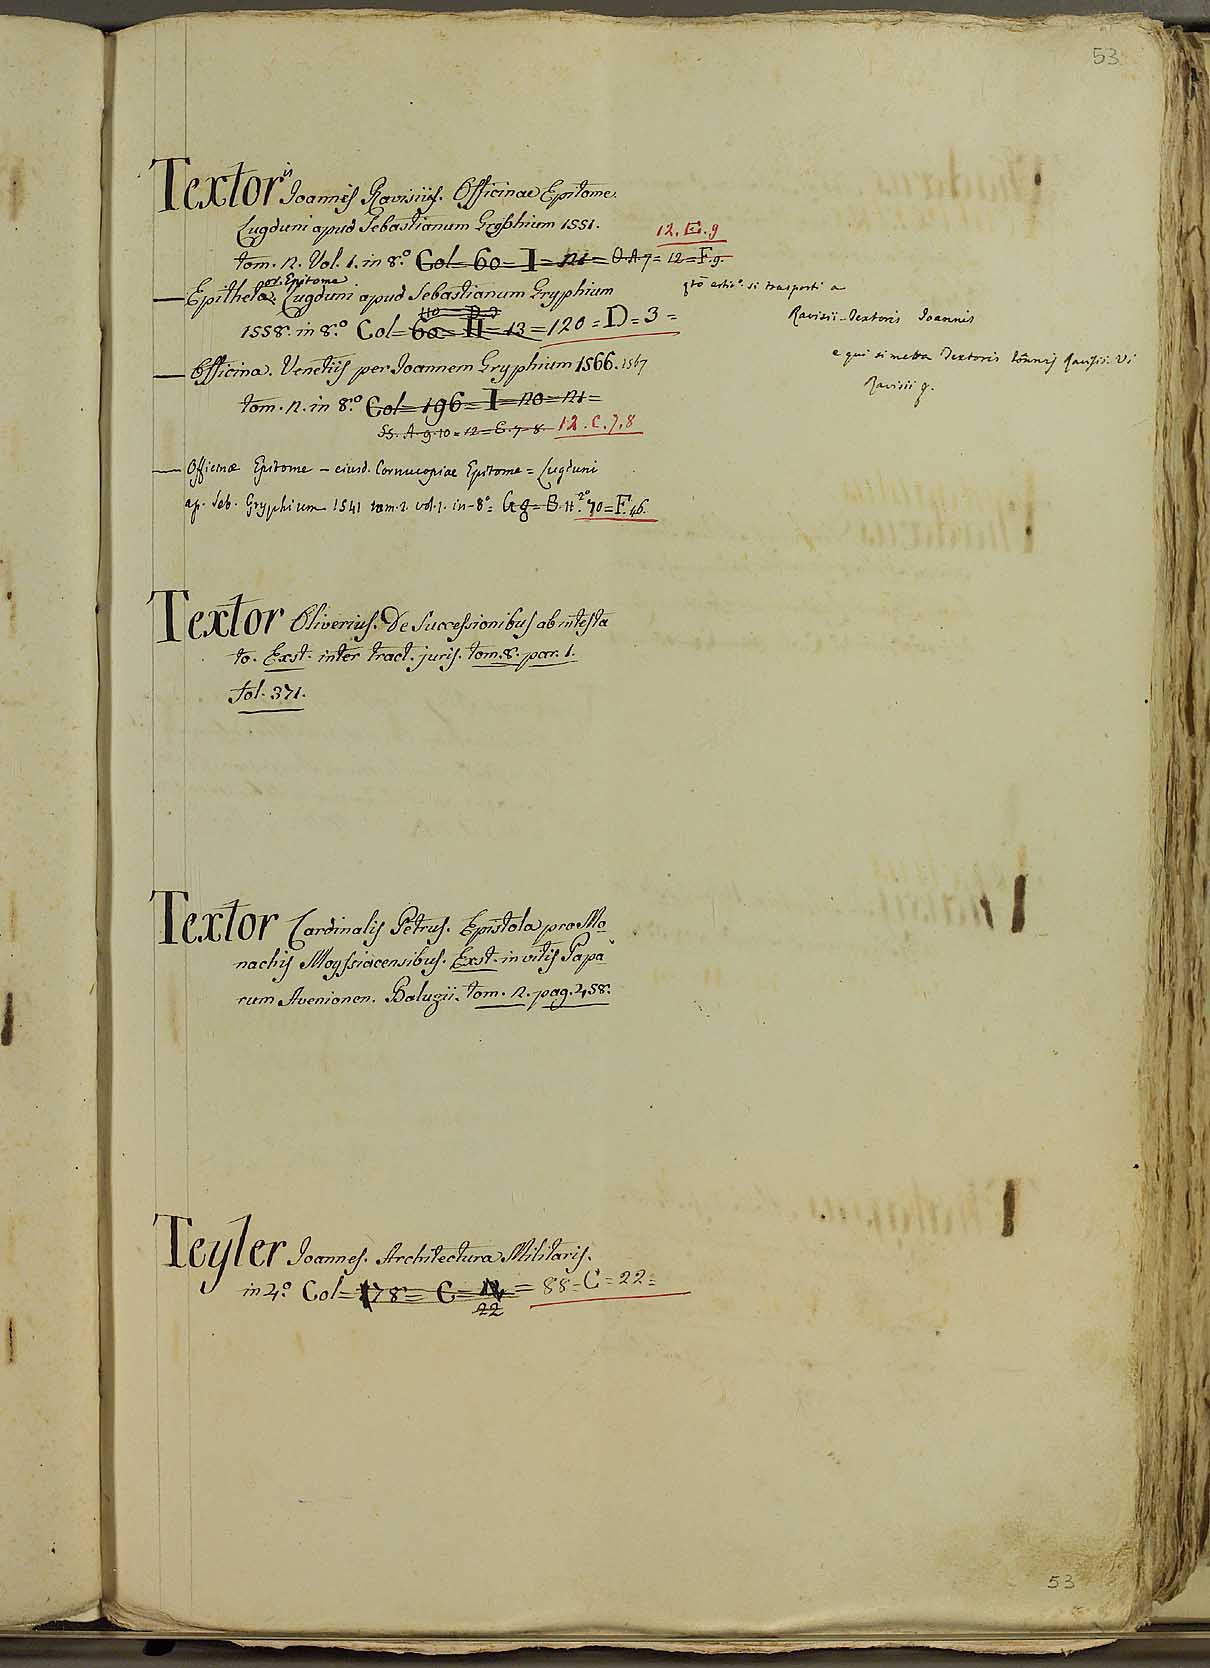 53
Textoris Joannis Ravisii. Officinae Epitome.
Lugduni apud Sebastianum Gryphium 1551.
12. E. 9
tom. 2. Vol. 1. in 8.° Col= 60= I= 21= O A 7= 12=F.9.
— Epitheta. Epitome Lugduni apud Sebastianum Gryphium
1558. in 8.° Col= 60= H= 13= 120= D= 3=
si trasporti a
Ravisii-Textoris Joannis
e qui si metta Textoris Joannis Ravisii. Vi
Ravisii &.
— Officina. Venetiis per Joannem Gryphium 1566. 1567
tom. 2. in 8.° Col= 196= I= 20= 21=
SS. A. 9. 10= 12= C. 7. 8. 12. C. 7,8
— Officinæ Epitome – eiusd. Cornucopiae Epitome = Lugduni
ap. Seb. Gryphium 1541 tom. 2. vol. 1. in-8°= Gg= B. 11. 2° 70= F. 46.
Textor Oliverius. De Successionibus ab intesta
to. Exst. inter tract. juris. tom. 8. par. 1.
fol. 371.
Textor Cardinalis Petrus. Epistola pro Mo
nachis Moyssiacensibus. Exst. in vitis Papa
rum Avenionen. Baluzii. tom. 2. pag. 458.
Teyler Joannes. Architectura Militaris.
in 4.° Col= 178= C= = 88= C= 22=
22
53